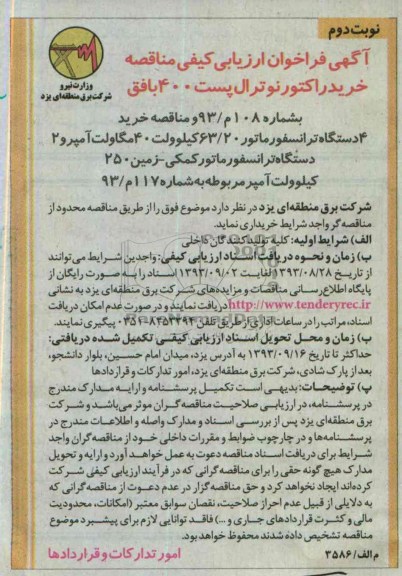 نوبت دوم
آگهی فراخوان ارزیابی کیفی مناقصه
خرید راکتور نوترال پست ۴۰۰ بافق
وزارت نیرو
شرکت برق منطقه‌ای یزد
بشماره ۱۰۸م/۹۳ و مناقصه خرید
۴ دستگاه ترانسفورماتور ۶۳/۲۰ کیلوولت ۴۰ مگاولت آمپر و ۲
دستگاه ترانسفورماتور کمکی-زمین ۲۵۰
کیلوولت آمپر مربوطه به شماره ۱۱۷م/۹۳
شرکت برق منطقه‌ای یزد در نظر دارد موضوع فوق را از طریق مناقصه محدود از
مناقصه گر واجد شرایط خریداری نماید.
الف) شرایط اولیه: کلیه تولیدکنندگان داخلی
ب) زمان و نحوه دریافت اسناد ارزیابی کیفی: واجدین شرایط می‌توانند
از تاریخ ۱۳۹۳/۰۸/۲۸ لغایت ۱۳۹۳/۰۹/۰۲ اسناد را به صورت رایگان از
پایگاه اطلاع رسانی مناقصات و مزایده‌های شرکت برق منطقه‌ای یزد به نشانی
http://www.tenderyrec.ir دریافت نمایند و در صورت عدم امکان دریافت
اسناد، مراتب را در ساعات اداری از طریق تلفن ۸۲۵۳۳۹۲-۰۳۵۱ پیگیری نمایند.
ب) زمان و محل تحویل اسناد ارزیابی کیفی تکمیل شده دریافتی:
حداکثر تا تاریخ ۱۳۹۳/۰۹/۱۶ به آدرس یزد، میدان امام حسین، بلوار دانشجو،
بعد از پارک شادی، شرکت برق منطقه‌ای یزد، امور تدارکات و قراردادها
پ) توضیحات: بدیهی است تکمیل پرسشنامه و ارایه مدارک مندرج
در پرسشنامه، در ارزیابی صلاحیت مناقصه گران موثر می‌باشد و شرکت
برق منطقه‌ای یزد پس از بررسی اسناد و مدارک واصله و اطلاعات مندرج در
پرسشنامه‌ها و در چارچوب ضوابط و مقررات داخلی خود از مناقصه گران واجد
شرایط برای دریافت اسناد مناقصه دعوت به عمل خواهد آورد و ارایه و تحویل
مدارک هیچ گونه حقی را برای مناقصه گرانی که در فرآیند ارزیابی کیفی شرکت
کرده‌اند ایجاد نخواهد کرد و حق مناقصه گزار در عدم دعوت از مناقصه گرانی که
به دلایلی از قبیل عدم احراز صلاحیت، نقصان سوابق معتبر (امکانات، محدودیت
مالی و کثرت قراردادهای جاری و ...) فاقد توانایی لازم برای پیشبرد موضوع
مناقصه تشخیص داده شدند محفوظ خواهد بود.
م الف/۳۵۸۶
امور تدارکات و قراردادها